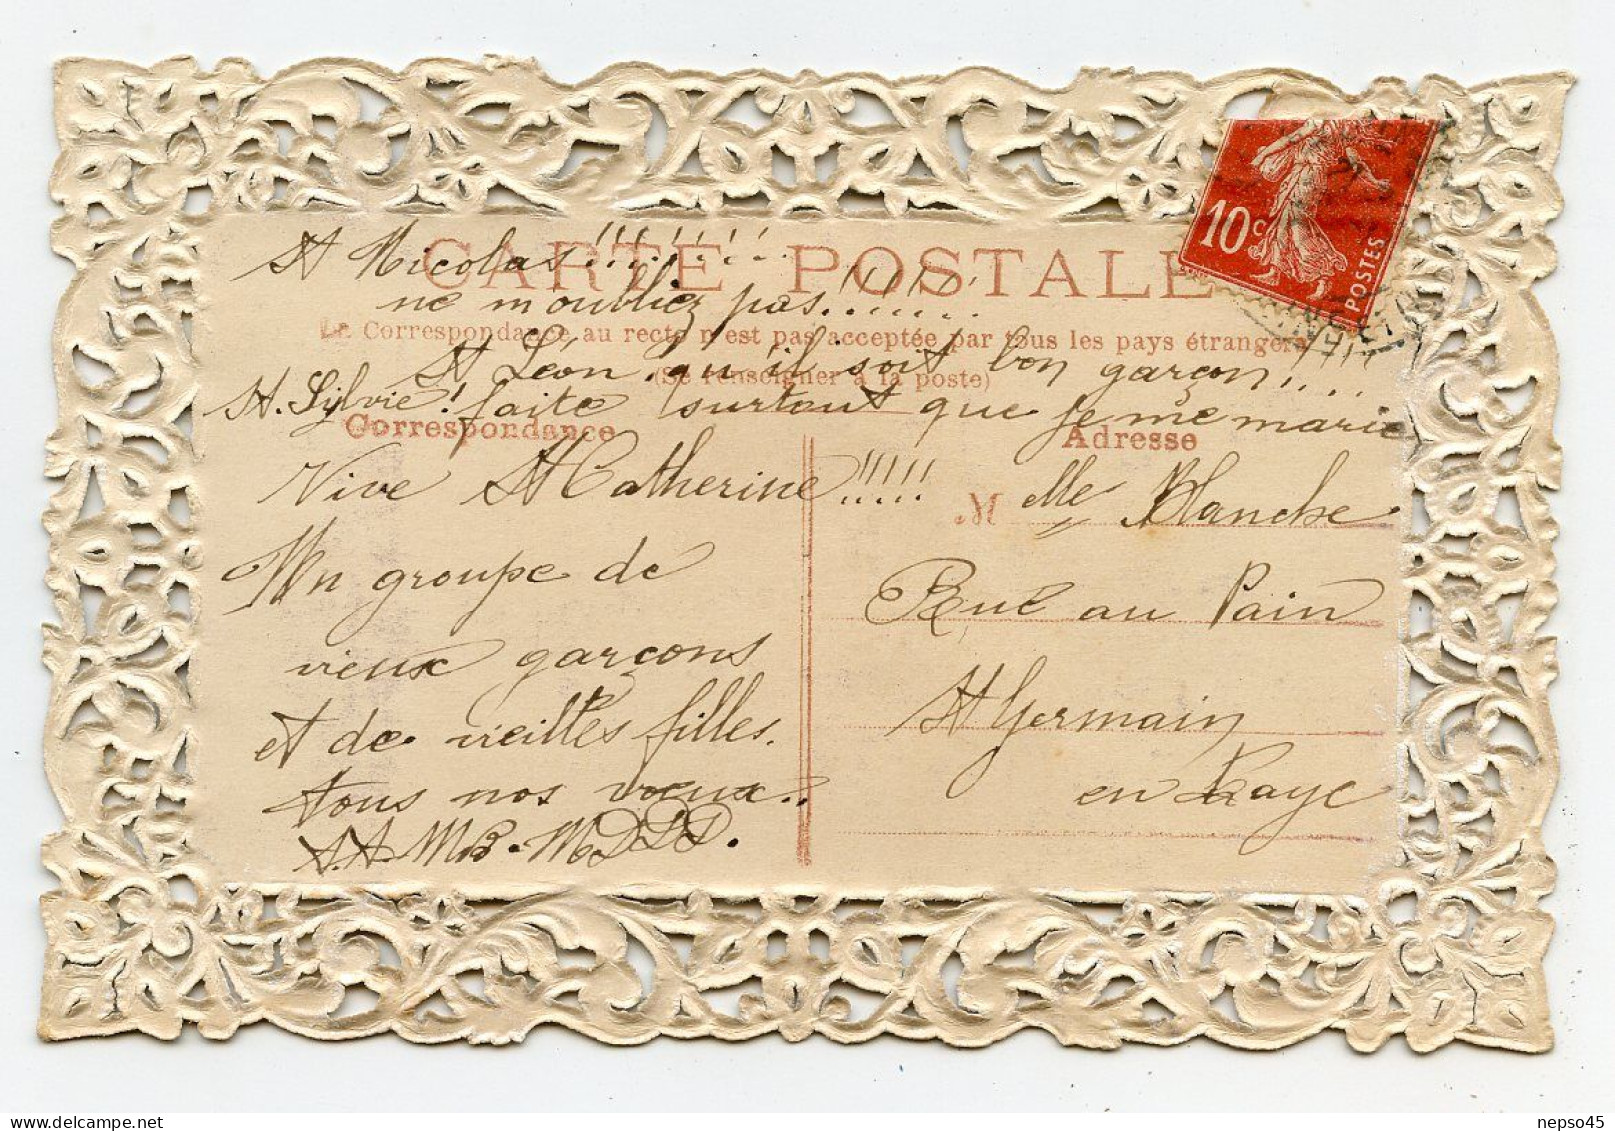 CARTE POSTALE
St Nicolas!!!!!!!
ne m'oubliez pas!!!!!!
La Correspondance au recto n'est pas acceptée par tous les pays étrangers
(Se renseigner à la poste)
St Léon, qu'il soit bon garçon!!!!
St. Sylvie! faite surtout que je me marie
Correspondance
Vive St Catherine!!!!!
Un groupe de
vieux garçons
et de vieilles filles.
tous nos vœux..
Adresse
M elle Blanche
Rue au Pain
St Germain
en Laye
10c
POSTES
nepso45